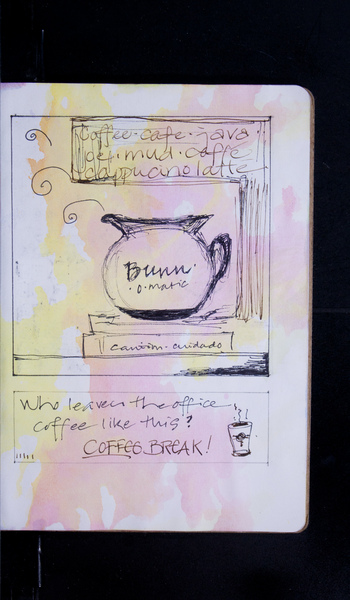 Coffee · cafe · java ·
joe · mud · caffe
cappucino latte
Bunn ·
· o · matic
caution · cuidado
Who leaves the office
coffee like this?
COFFEE BREAK!